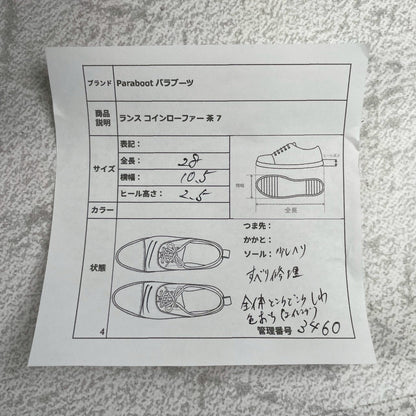 ブランド Paraboot パラブーツ
商品説明 ランス コインローファー 茶 7
サイズ
表記：
全長： 28
横幅： 10.5
ヒール高さ： 2.5
ヒール高さ
横幅
全長
カラー
状態
つま先：
かかと：
ソール： 少しヘリ
すべり修理
全体ところどころしわ
色おち
管理番号 3460
4